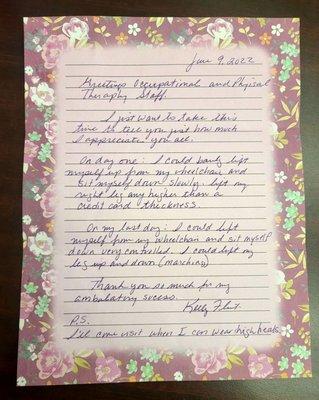 June 9, 2022
Greetings Occupational and Physical
Theraphy Staff.
I just want to take this
time to tell you just how much
I appreciate you all.
On day one: I could barely lift
myself up from my wheelchair and
sit myself down slowly. lift my
right leg any higher than a
credit card thickness.
On my last day: I could lift
myself from my wheelchair and sit myself
down very controlled. I could lift my
leg up and down (marching)
Thank you so much for my
ambulating success.
Kelly
P.S.
I'll come visit when I can wear high heals.